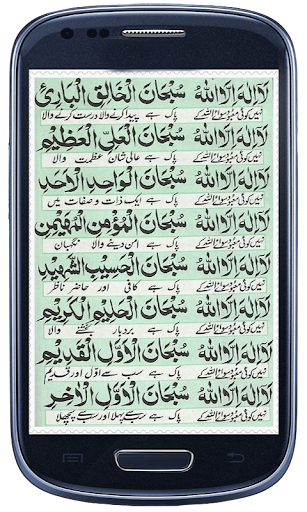 لَا اِلٰهَ اِلَّا اللّٰهُ سُبْحَانَ الْخَالِقِ الْبَارِئِ
نہیں کوئی معبود سوائے اللہ کے پاک ہے پیدا کرنے والا درست کرنے والا
لَا اِلٰهَ اِلَّا اللّٰهُ سُبْحَانَ الْعَلِيِّ الْعَظِيْمِ
نہیں کوئی معبود سوائے اللہ کے پاک ہے عالی شان عظمت والا
لَا اِلٰهَ اِلَّا اللّٰهُ سُبْحَانَ الْوَاحِدِ الْاَحَدِ
نہیں کوئی معبود سوائے اللہ کے پاک ہے ایک ذات و صفات میں
لَا اِلٰهَ اِلَّا اللّٰهُ سُبْحَانَ الْمُؤْمِنِ الْمُهَيْمِنِ
نہیں کوئی معبود سوائے اللہ کے پاک ہے امن دینے والا نگہبان
لَا اِلٰهَ اِلَّا اللّٰهُ سُبْحَانَ الْحَسِيْبِ الشَّهِيْدِ
نہیں کوئی معبود سوائے اللہ کے پاک ہے کافی اور حاضر ناظر
لَا اِلٰهَ اِلَّا اللّٰهُ سُبْحَانَ الْحَلِيْمِ الْكَرِيْمِ
نہیں کوئی معبود سوائے اللہ کے پاک ہے بردبار بخشنے والا
لَا اِلٰهَ اِلَّا اللّٰهُ سُبْحَانَ الْاَوَّلِ الْقَدِيْمِ
نہیں کوئی معبود سوائے اللہ کے پاک ہے سب سے اوّل اور قدیم
لَا اِلٰهَ اِلَّا اللّٰهُ سُبْحَانَ الْاَوَّلِ الْاٰخِرِ
نہیں کوئی معبود سوائے اللہ کے پاک ہے سب سے پہلا اور سب سے پچھلا